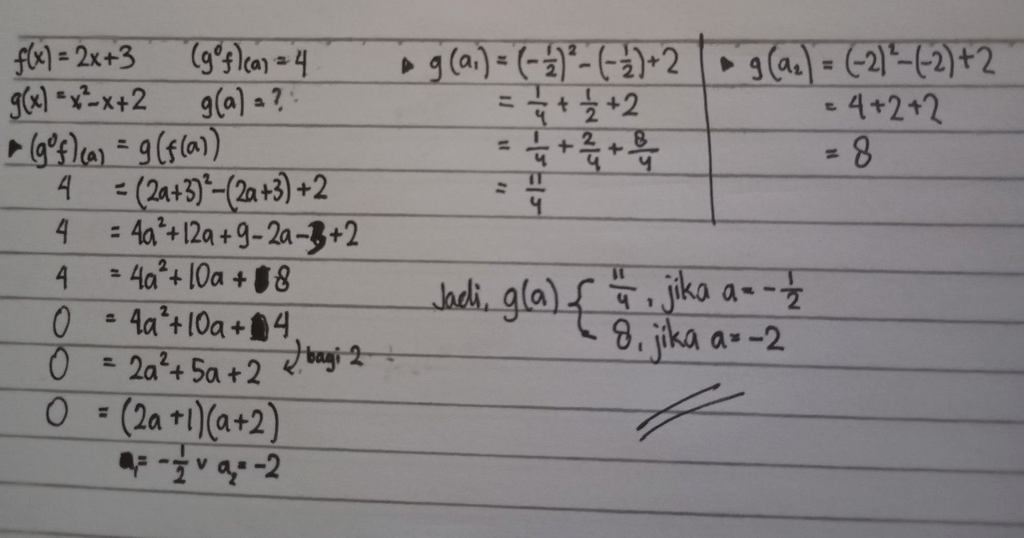 f(x) = 2x+3   (g∘f)(a) = 4
g(x) = x²-x+2   g(a) = ?
▸ (g∘f)(a) = g(f(a))
4 = (2a+3)²-(2a+3)+2
4 = 4a²+12a+9-2a-3+2
4 = 4a²+10a+8
0 = 4a²+10a+4
0 = 2a²+5a+2 bagi 2
0 = (2a+1)(a+2)
a₁ = -1/2 v a₂ = -2
▸ g(a₁) = (-1/2)²-(-1/2)+2
= 1/4 + 1/2 + 2
= 1/4 + 2/4 + 8/4
= 11/4
▸ g(a₂) = (-2)²-(-2)+2
= 4+2+2
= 8
Jadi, g(a) { 11/4, jika a = -1/2
8, jika a = -2